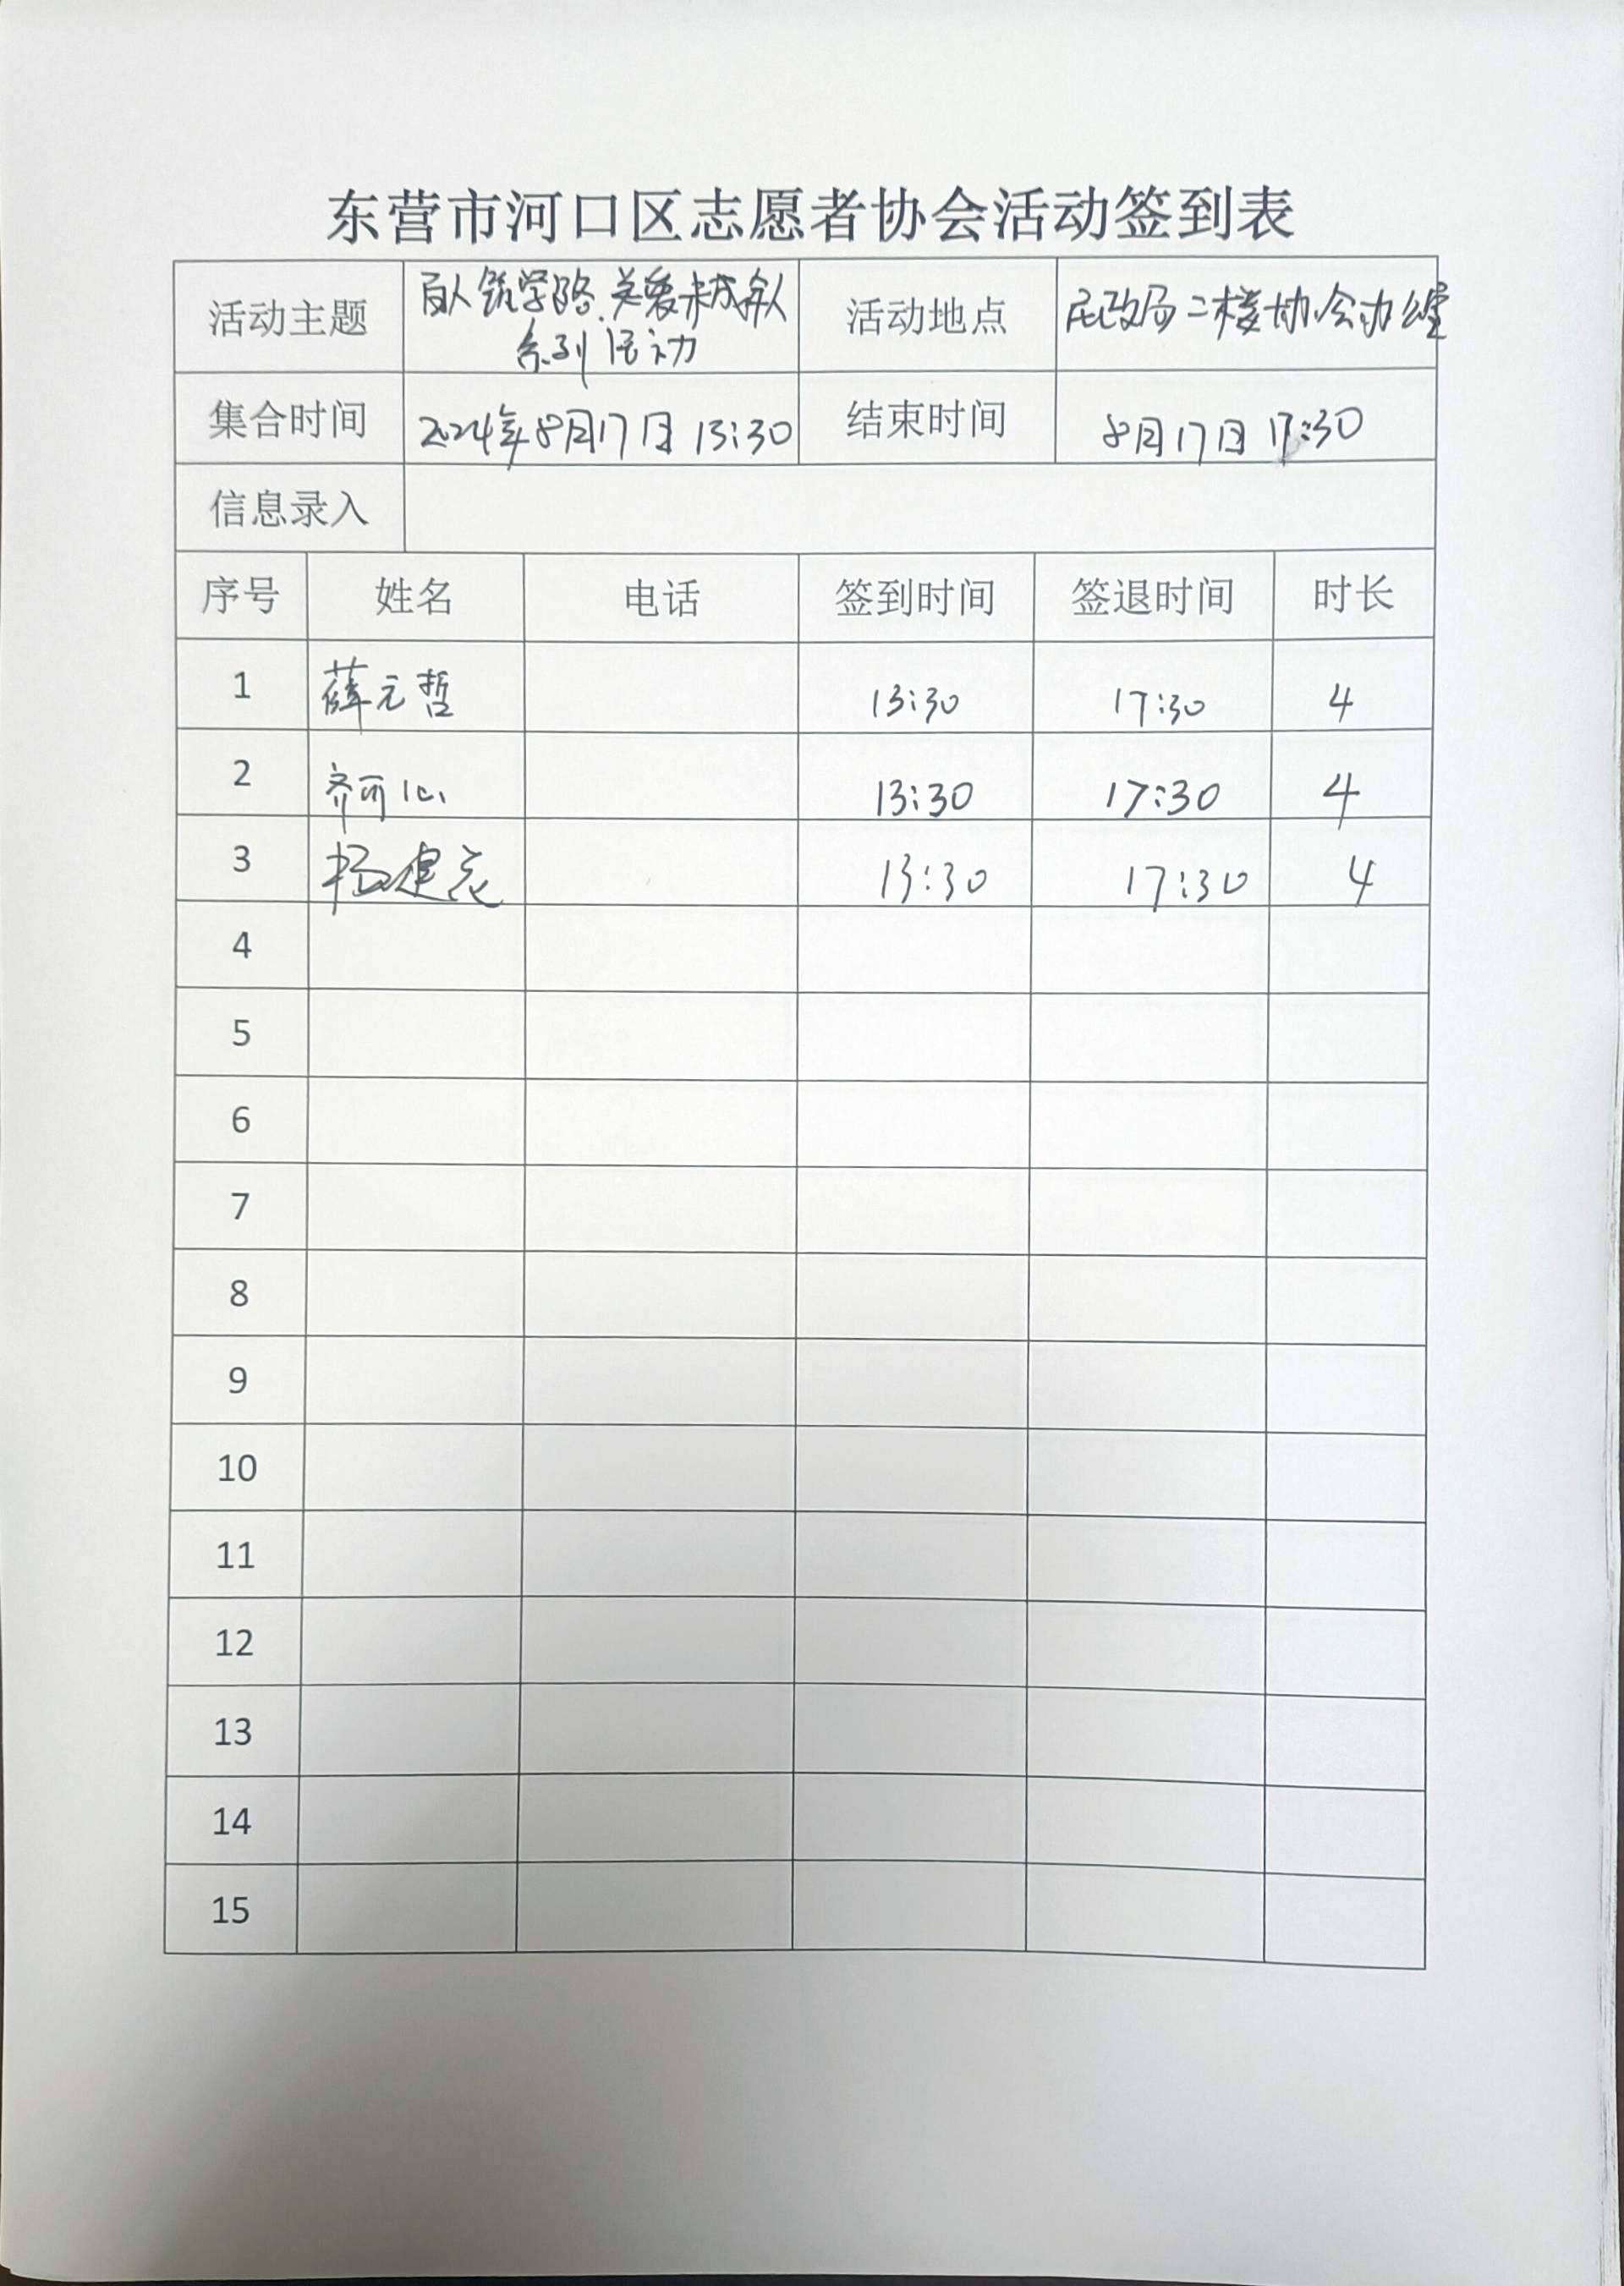 东营市河口区志愿者协会活动签到表
活动主题 百人筑学路.关爱未成年人 活动地点 民政局二楼协会办公室
系列活动
集合时间 2024年8月17日 13:30 结束时间 8月17日 17:30
信息录入
序号 姓名 电话 签到时间 签退时间 时长
1 薛元哲 13:30 17:30 4
2 齐可心 13:30 17:30 4
3 杨建 13:30 17:30 4
4
5
6
7
8
9
10
11
12
13
14
15